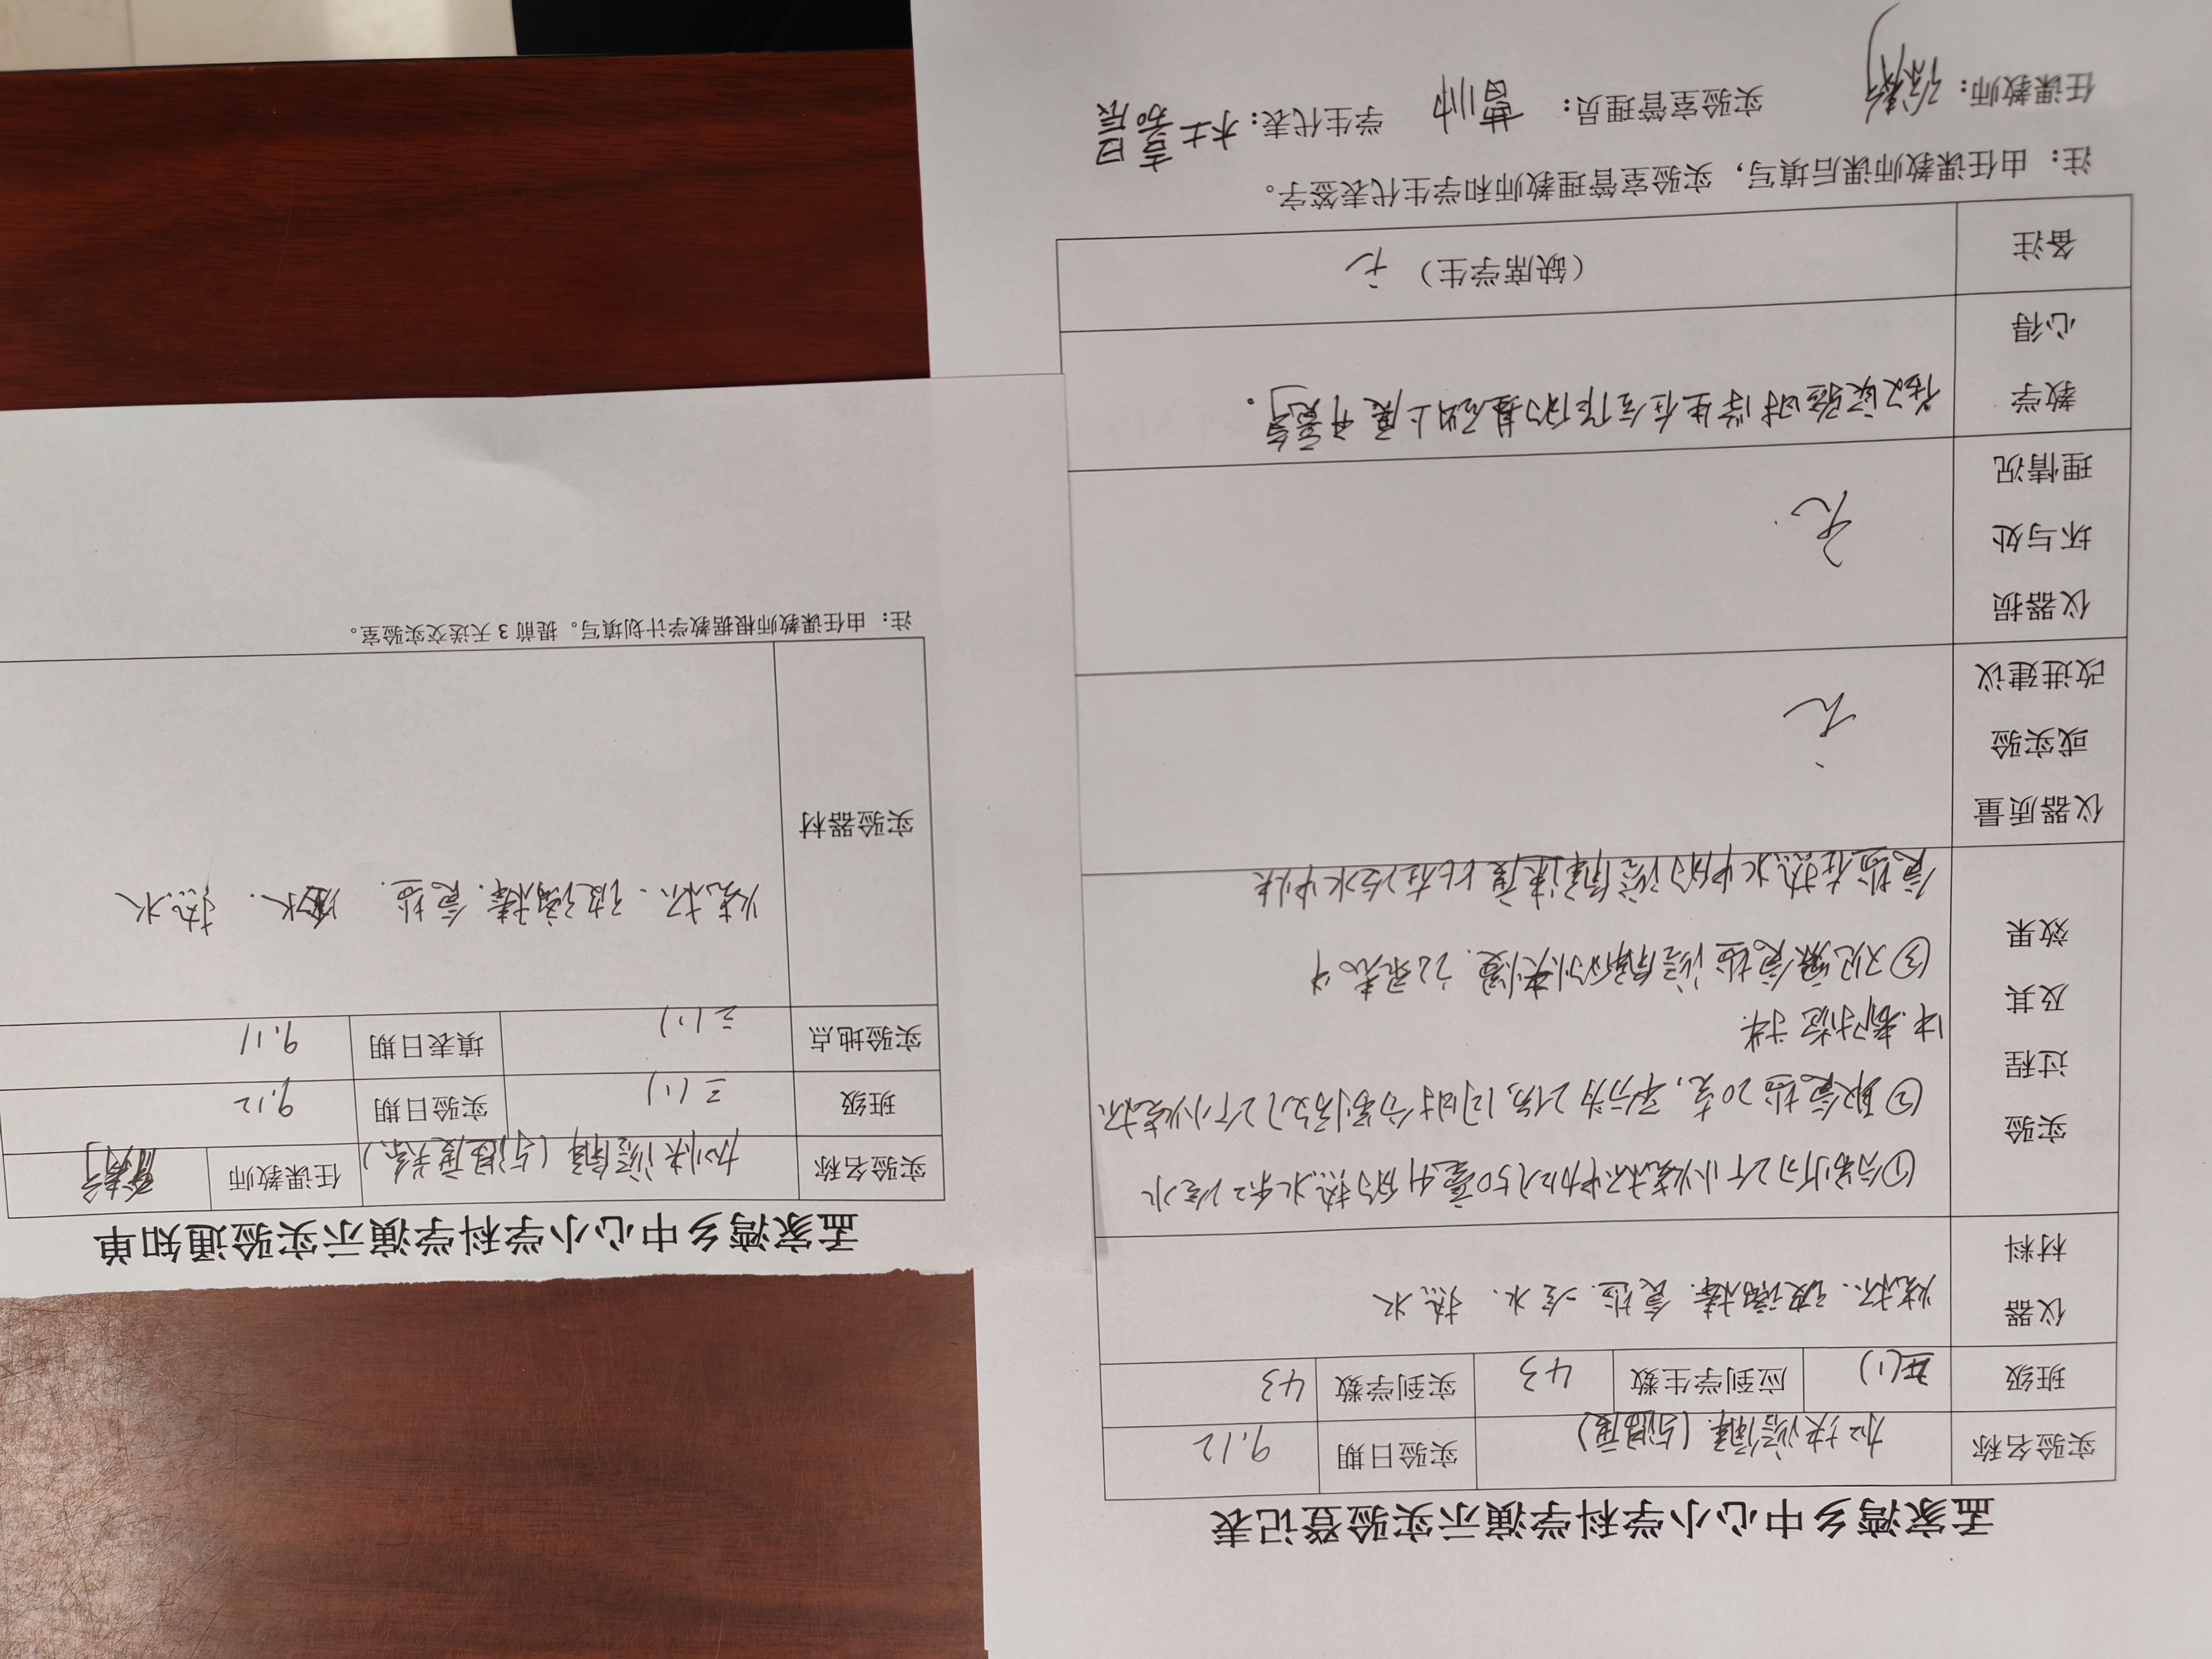 孟家湾乡中心小学科学演示实验登记表
实验名称 加快溶解(与温度) 实验日期 9.12
班级 三(1) 应到学生数 43 实到学数 43
仪器材料 烧杯、玻璃棒、食盐、冷水、热水
实验过程及其效果
①分别为2个小烧杯中加入50毫升的热水和冷水
②取食盐20克,平分为2份,同时分别放入2个小烧杯
中都不搅拌
③观察食盐溶解的快慢、
食盐在热水中的溶解速度比在冷水中快
仪器质量或实验改进建议 无
仪器损坏与处理情况 无
教学心得 在实验时学生在合作的基础上展开
备注 (缺席学生) 无
注:由任课教师课后填写,实验室管理教师和学生代表签字。
任课教师: 实验室管理员: 学生代表:
孟家湾乡中心小学科学演示实验通知单
实验名称 加快溶解(与温度关系) 任课教师
班级 三(1) 实验日期 9.12
实验地点 三(1) 填表日期 9.11
实验器材 烧杯、玻璃棒、食盐、冷水、热水
注:由任课教师根据教学计划填写。提前 3 天送交实验室。